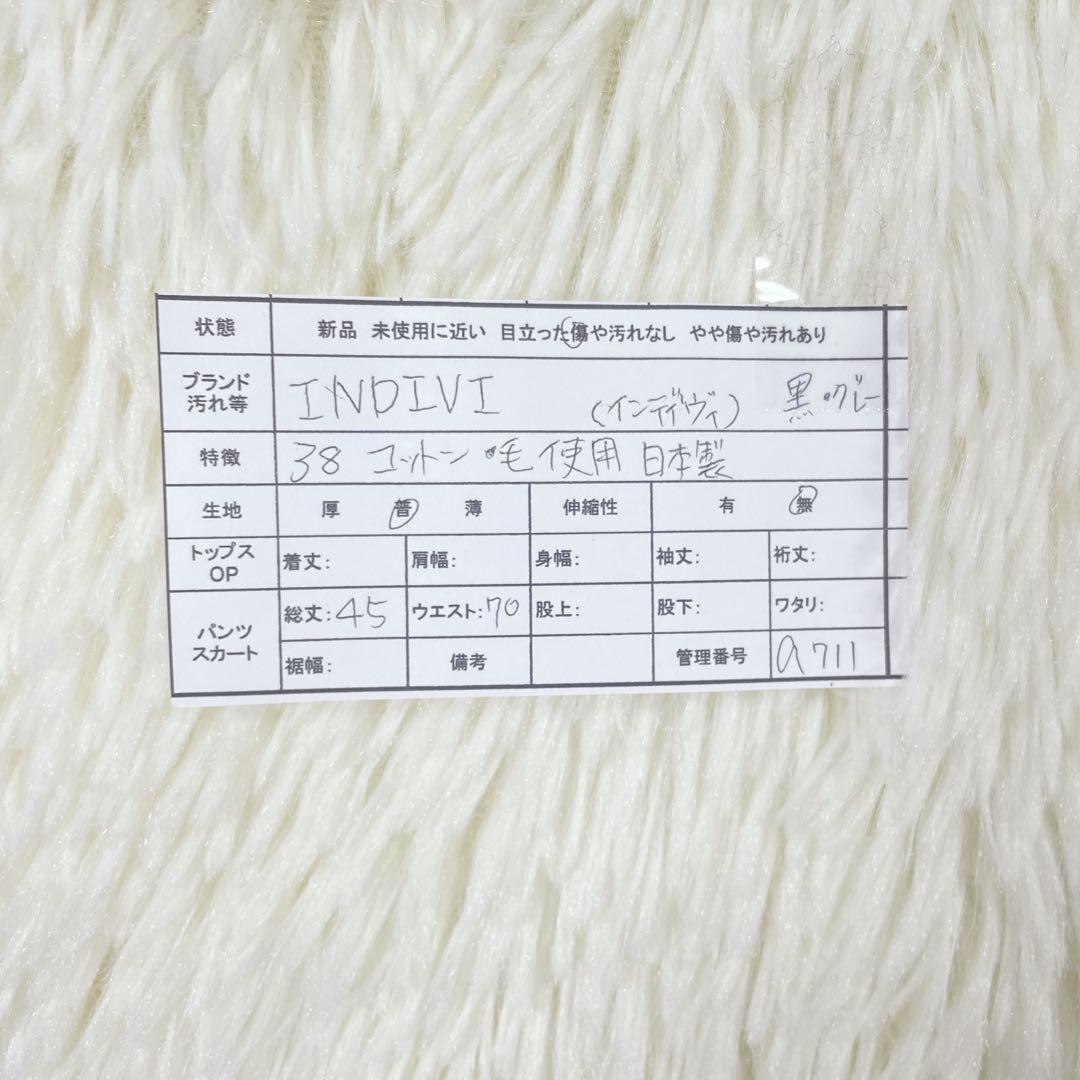 状態 新品 未使用に近い 目立った傷や汚れなし やや傷や汚れあり
ブランド
汚れ等 INDIVI (インディヴィ) 黒・グレー
特徴 38 コットン・毛使用 日本製
生地 厚 普 薄 伸縮性 有 無
トップス
OP 着丈: 肩幅: 身幅: 袖丈: 裄丈:
パンツ
スカート 総丈:45 ウエスト:70 股上: 股下: ワタリ:
裾幅: 備考 管理番号 a711